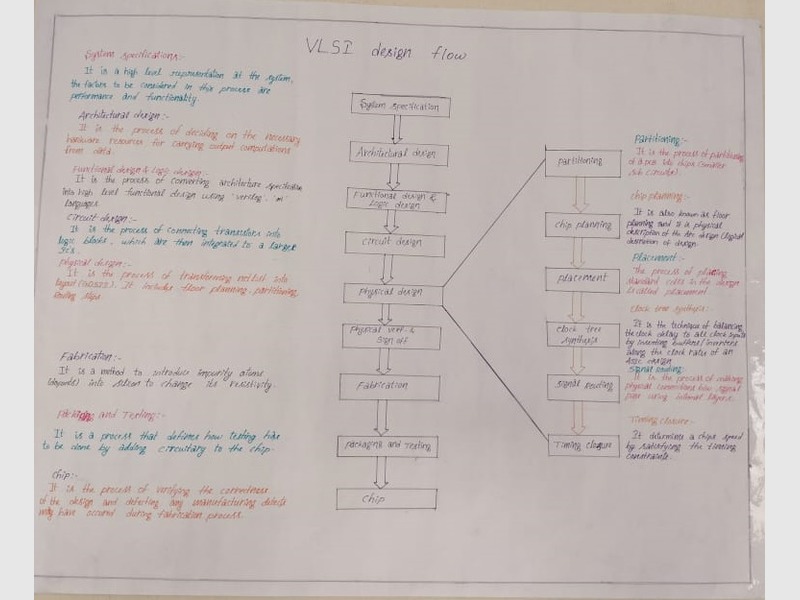 VLSI design flow
System specifications:-
It is a high level representation of the system,
the factors to be considered in this process are
performance and functionality.
Architectural design:-
It is the process of deciding on the necessary
hardware resources for carrying output computations
from data.
Functional design & Logic design:-
It is the process of converting architecture specification
into high level functional design using "verilog"
languages
Circuit design:-
It is the process of connecting transistors into
logic blocks, which are then integrated to a larger
Physical design:-
It is the process of transforming netlist into
layout (GDSII). It includes floor planning, partitioning,
Routing steps
Fabrication:-
It is a method to introduce impurity atoms
(dopants) into silicon to change its resistivity.
Packaging and Testing:-
It is a process that defines how testing has
to be done by adding circuitary to the chip.
Chip:-
It is the process of verifying the correctness
of the design and detecting any manufacturing defects
may have occured during fabrication process.
System specification
Architectural design
Functional design &
Logic design
circuit design
Physical design
Physical verif &
Sign off
Fabrication
Packaging and Testing
Chip
partitioning
chip planning
placement
clock tree
synthesis
signal routing
Timing closure
Partitioning:-
It is the process of partitioning
of a into chips (smaller
sub circuits).
chip planning:-
It is also known as floor
planning and is a physical
description of the design (Logical
description of design.
Placement:-
The process of placing
standard cells in the design
is called placement
Clock tree synthesis:-
It is the technique of balancing
the clock delay to all clock inputs
by inserting buffers/inverters
along the clock of an
ASIC design
Signal Routing:-
It is the process of making
physical connections how signal
pins using layers.
Timing closure:-
It determines a chips speed
by satisfying the timing
constraints.